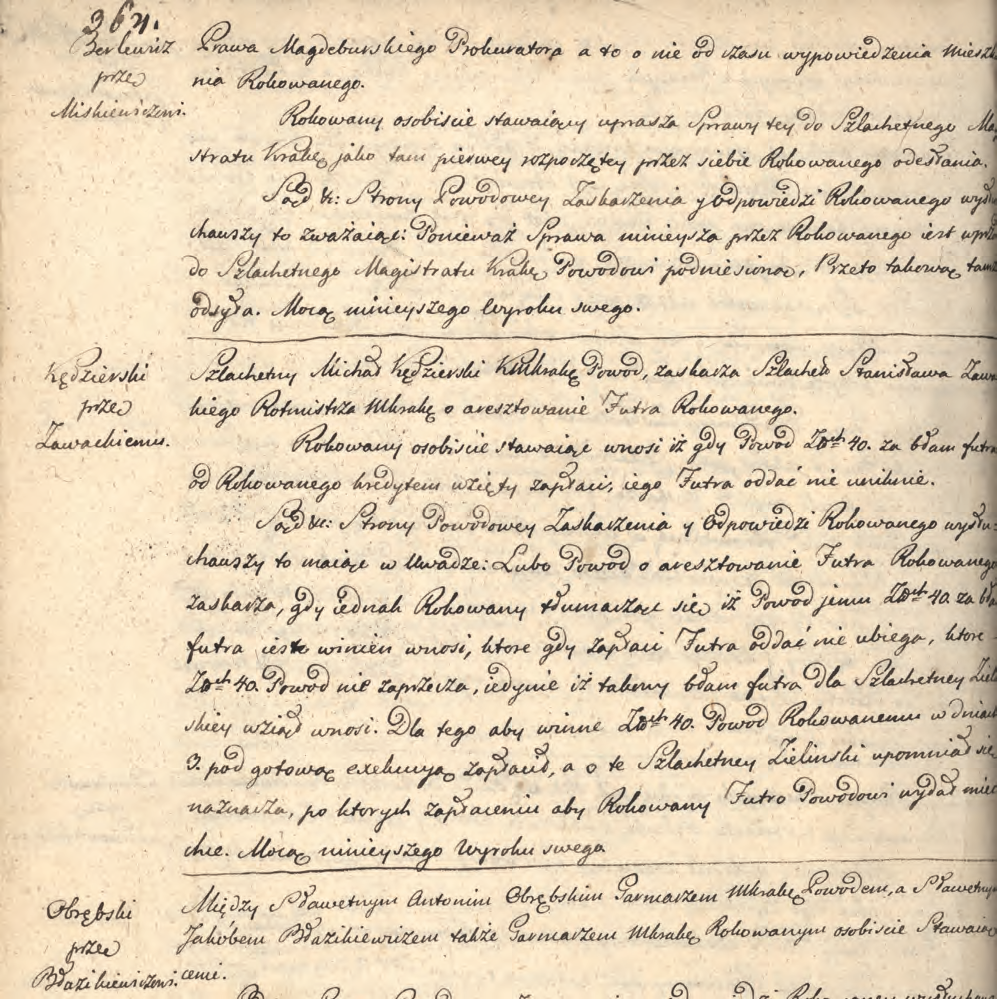 364.
Berlewicz
przec
Miskiewiczowi.
Prawa Magdeburskiego Prokuratora a to o nie od czasu wypowiedzenia mieszka
nia Rokowanego.
Rokowany osobiscie stawaiący uprasza Sprawy tey do Szlachetnego Ma
stratu Krakg jako tam pierwey rozpoczętey przez siebie Rokowanego odesłania.
Sąd &c: Strony Powodowey Zaskarzenia y Odpowiedzi Rokowanego wysłu
chauszy to zważaiąc: Ponieważ Sprawa ninieysza przez Rokowanego iest uprz
do Szlachetnego Magistratu Krakg Powodowi podniesioną, Przeto takową tamż
odsyła. Mocą ninieyszego Wyroku swego.
Kędzierski
przec
Zawackiemu.
Szlachetny Michał Kędzierski Powod, zaskarza Szlachet Stanisława Zawa
kiego Rotmistrza Mkrakg o aresztowanie Futra Rokowanego.
Rokowany osobiscie stawaiąc wnosi iż gdy Powod 40. za błam futra
od Rokowanego kredytem wzięty zapłaci, iego Futra oddać nie uniknie.
Sąd &c: Strony Powodowey Zaskarzenia y Odpowiedzi Rokowanego wysłu:
chauszy to maiąc w Uwadze: Lubo Powod o aresztowanie Futra Rokowanego
zaskarza, gdy iednak Rokowany tłumacząc się iż Powod jemu 40. za bła
futra iest winien wnosi, ktore gdy zapłaci Futra oddać nie ubiega, ktore
40. Powod nie zaprzecza, iedynie iż takowy błam futra dla Szlachetney Ziel
skiey wziął wnosi. Dla tego aby winne 40. Powod Rokowanemu w dniach
3. pod gotową exekucyą zapłacił, a o te Szlachetney Zielinski upomniał się
naznacza, po ktorych zapłaceniu aby Rokowany Futro Powodowi wydał miec
chce. Mocą ninieyszego Wyroku swego
Obrębski
przec
Błazikiewiczowi.
Między Sławetnym Antonim Obrębskim Garmarzem Mkrakg Powodem, a Sławetnym
Jakobem Błazikiewiczem także Garmarzem Mkrakg Rokowanym osobiscie Stawaią
cemi.